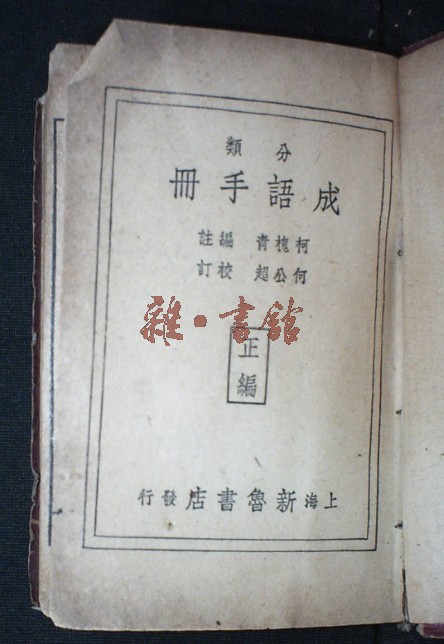 分類
成語手冊
柯槐青編註
何公超校訂
雜·書館
正編
上海新魯書店發行